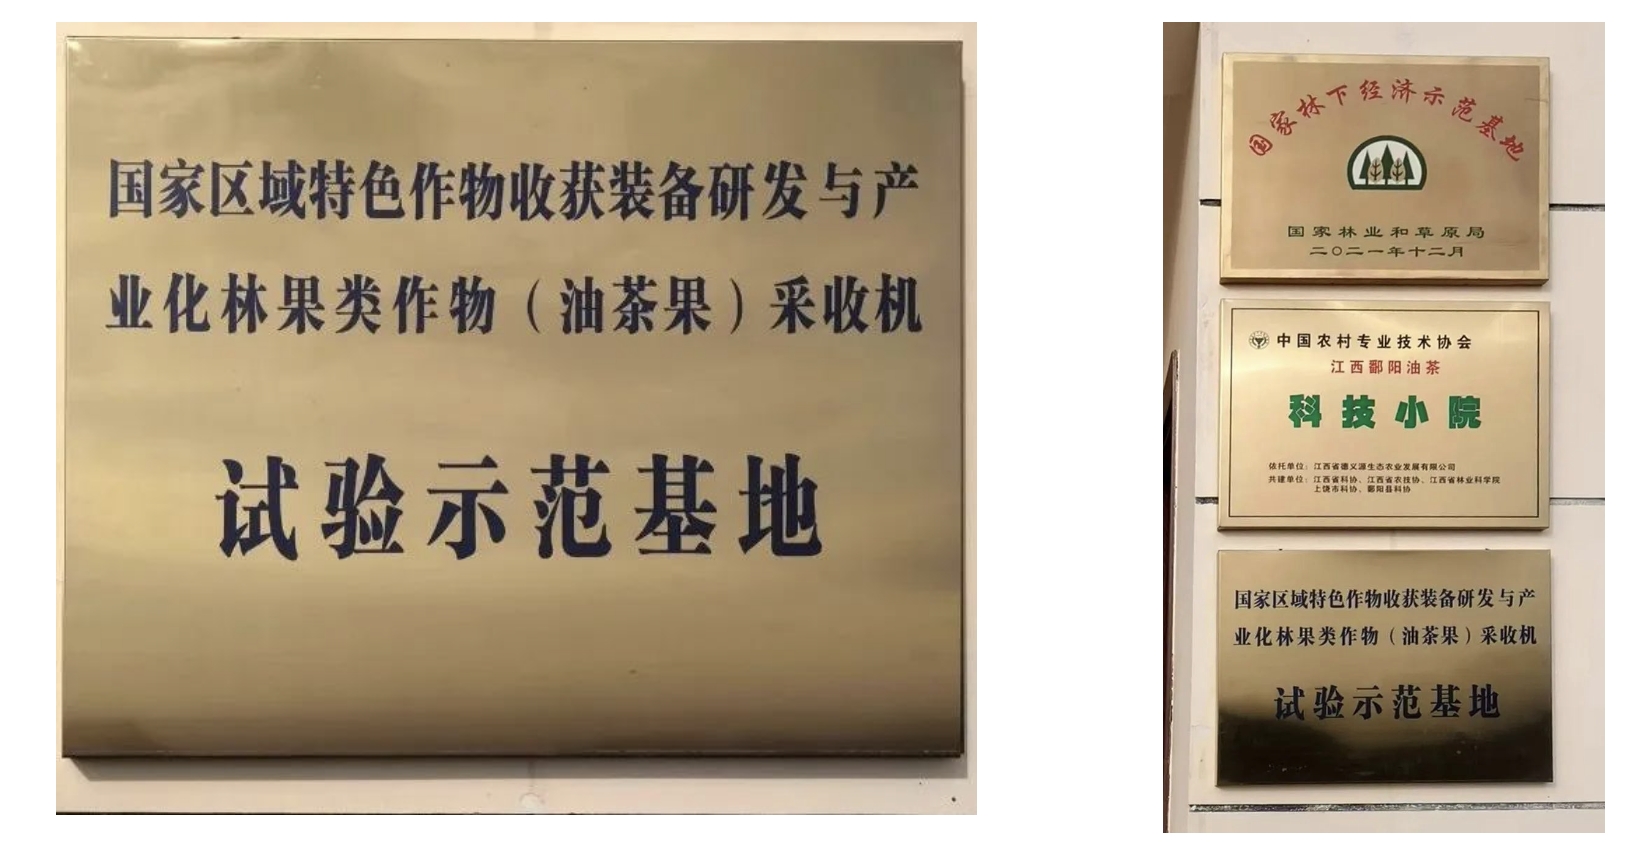 国家区域特色作物收获装备研发与产
业化林果类作物（油茶果）采收机
试验示范基地
国家林下经济示范基地
国家林业和草原局
二〇二一年十二月
中国农村专业技术协会
江西鄱阳油茶
科技小院
依托单位：江西省德义源生态农业发展有限公司
共建单位：江西省科协、江西省农技协、江西省林业科学院
上饶市科协、鄱阳县科协
国家区域特色作物收获装备研发与产
业化林果类作物（油茶果）采收机
试验示范基地